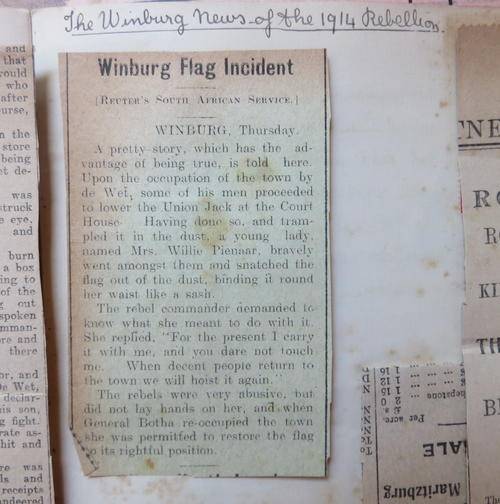 The Winburg News of the 1914 Rebellion.
and
that
would
who
after
ourse,
n the
store
being
et de-
was
struck
e eye,
and
burn
a box
ing to
of the
g out
spoken
mman-
re and
there
or, and
De Wet,
declar-
his son,
g fight.
rate as-
hit and
re was
ls and
receipts
Winburg Flag Incident
[REUTER'S SOUTH AFRICAN SERVICE.]
WINBURG, Thursday.
A pretty story, which has the ad-
vantage of being true, is told here.
Upon the occupation of the town by
de Wet, some of his men proceeded
to lower the Union Jack at the Court
House Having done so, and tram-
pled it in the dust, a young lady,
named Mrs. Willie Pienaar, bravely
went amongst them and snatched the
flag out of the dust, binding it round
her waist like a sash.
The rebel commander demanded to
know what she meant to do with it.
She replied, "For the present I carry
it with me, and you dare not touch
me. When decent people return to
the town we will hoist it again."
The rebels were very abusive, but
did not lay hands on her, and when
General Botha re-occupied the town
she was permitted to restore the flag
to its rightful position.
TNE
RO
RO
KI
TH
B
The
Per acre.
£ s.
2 0
1 12
1 15
1 16
hepstone
ALE
Maritzburg